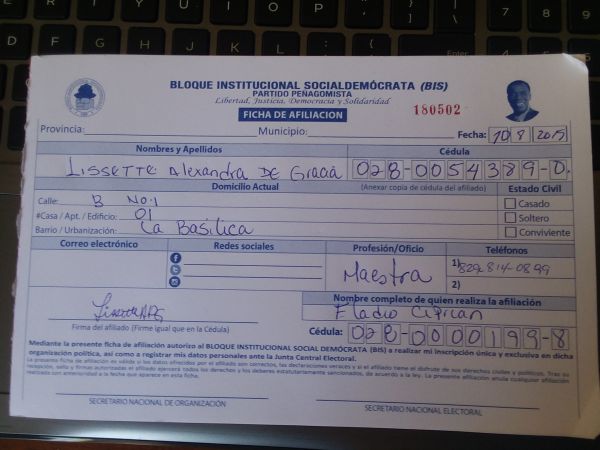 BLOQUE INSTITUCIONAL SOCIALDEMÓCRATA (BIS)
PARTIDO PEÑAGOMISTA
Libertad, Justicia, Democracia y Solidaridad
FICHA DE AFILIACION
180502
Provincia: Municipio: Fecha: 10 8 2015
Nombres y Apellidos Cédula
Lissette Alexandra De Gracia 028-0054389-0
Domicilio Actual (Anexar copia de cédula del afiliado) Estado Civil
Calle: B No. 1 Casado
#Casa / Apt. / Edificio: 01 Soltero
Barrio / Urbanización: La Basilica Conviviente
Correo electrónico Redes sociales Profesión/Oficio Teléfonos
Maestra 1) 829-814-0899
2)
Nombre completo de quien realiza la afiliación
Eladio Ciprian
Firma del afiliado (Firme igual que en la Cédula) Cédula: 028-0000199-8
Mediante la presente ficha de afiliación autorizo al BLOQUE INSTITUCIONAL SOCIAL DEMÓCRATA (BIS) a realizar mi inscripción única y exclusiva en dicha
organización política, así como a registrar mis datos personales ante la Junta Central Electoral.
La presente ficha de afiliación es válida si los datos ofrecidos por el afiliado son correctos, las declaraciones veraces y si el afiliado tiene el disfrute de sus derechos civiles y políticos. Tras su
recepción, sello y firmas autorizadas el afiliado ejercerá todos los derechos y los deberes estatutariamente sancionados, de acuerdo a la ley. La presente afiliación anula cualquier afiliación
realizada con anterioridad a la fecha que aparece en esta ficha.
SECRETARIO NACIONAL DE ORGANIZACIÓN SECRETARIO NACIONAL ELECTORAL